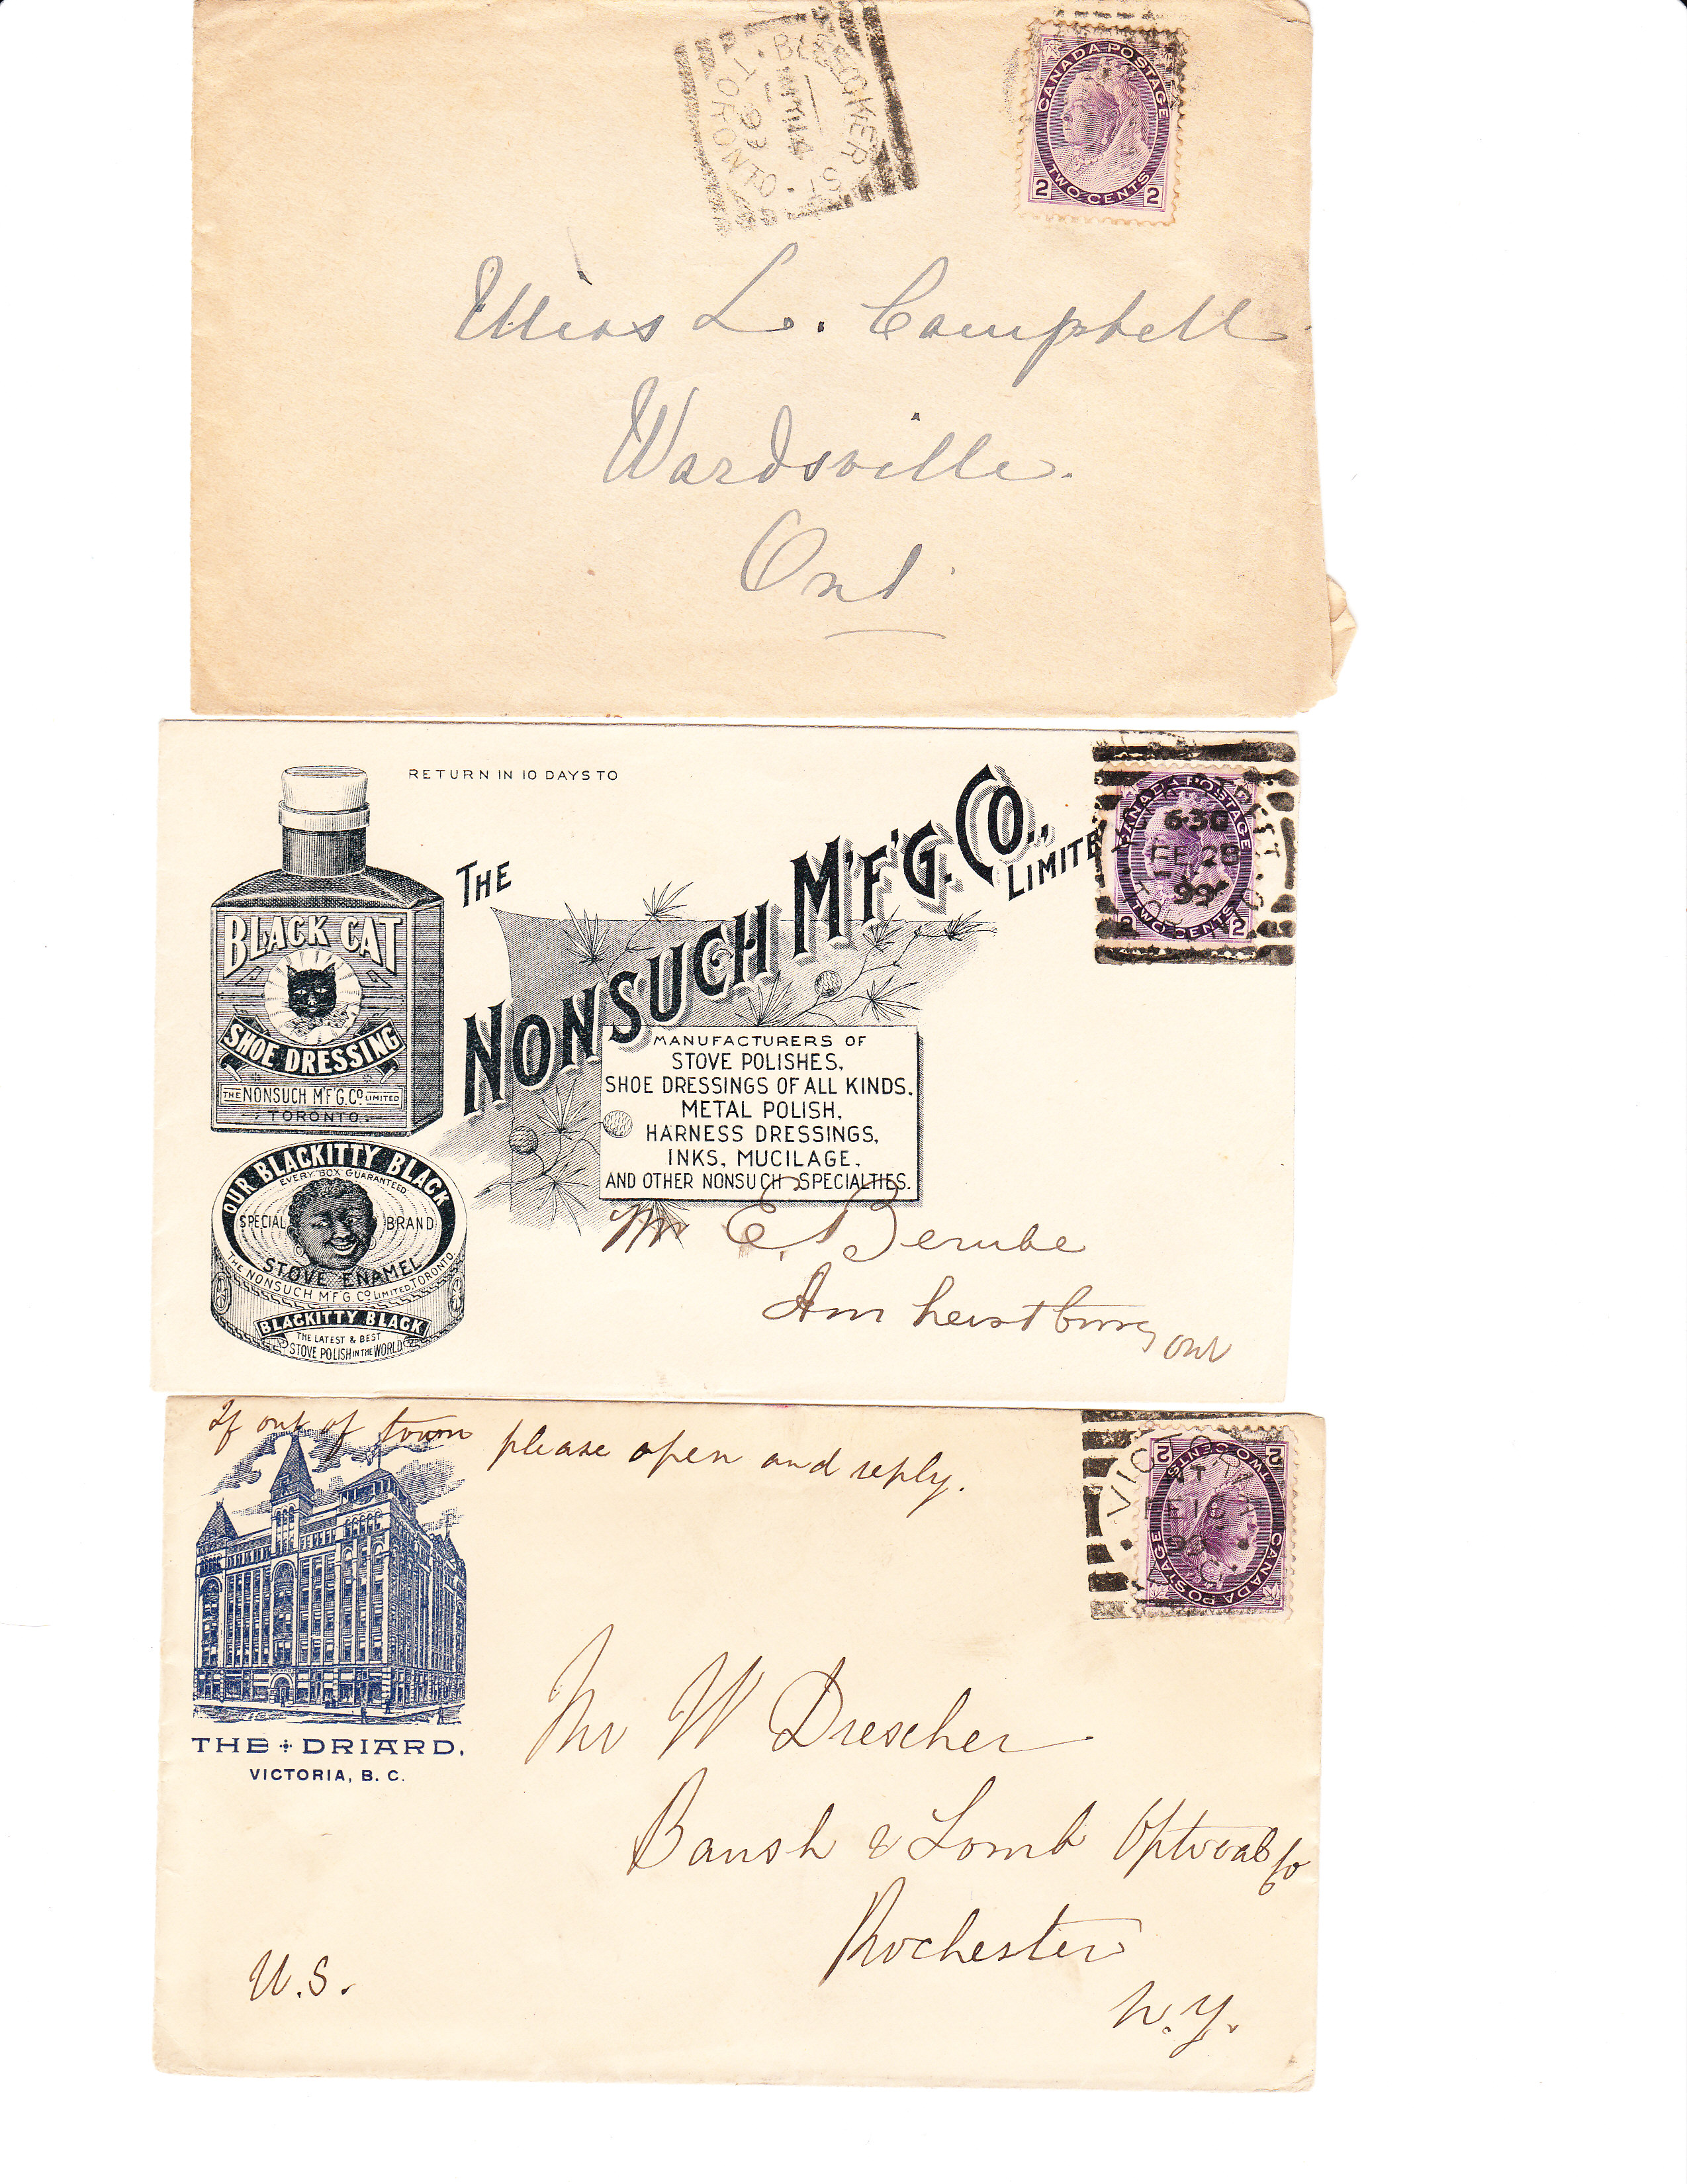 BLEECKER ST.
TORONTO
CANADA POSTAGE
2 TWO CENTS 2
Miss L. Campbell
Wardsville.
Ont.
RETURN IN 10 DAYS TO
THE
NONSUCH M'F'G. CO., LIMITE
CANADA POSTAGE
6·30
FE 28
99
2 TWO CENTS 2
BLACK CAT
SHOE DRESSING
THE NONSUCH M'F'G. CO. LIMITED
TORONTO.
MANUFACTURERS OF
STOVE POLISHES,
SHOE DRESSINGS OF ALL KINDS,
METAL POLISH,
HARNESS DRESSINGS,
INKS, MUCILAGE,
AND OTHER NONSUCH SPECIALTIES.
OUR BLACKITTY BLACK
EVERY BOX GUARANTEED
SPECIAL BRAND
STOVE ENAMEL
THE NONSUCH M'F'G. CO. LIMITED, TORONTO.
BLACKITTY BLACK
THE LATEST & BEST
STOVE POLISH IN THE WORLD
Mr E. Berube
Amherstburg
Ont
If out of town please open and reply.
VICTORIA
FE 18
99
2 TWO CENTS 2
CANADA POSTAGE
THE DRIARD.
VICTORIA, B. C.
Mr W Drescher
Baush & Lomb Optical Co
Rochester
N.Y.
U.S.